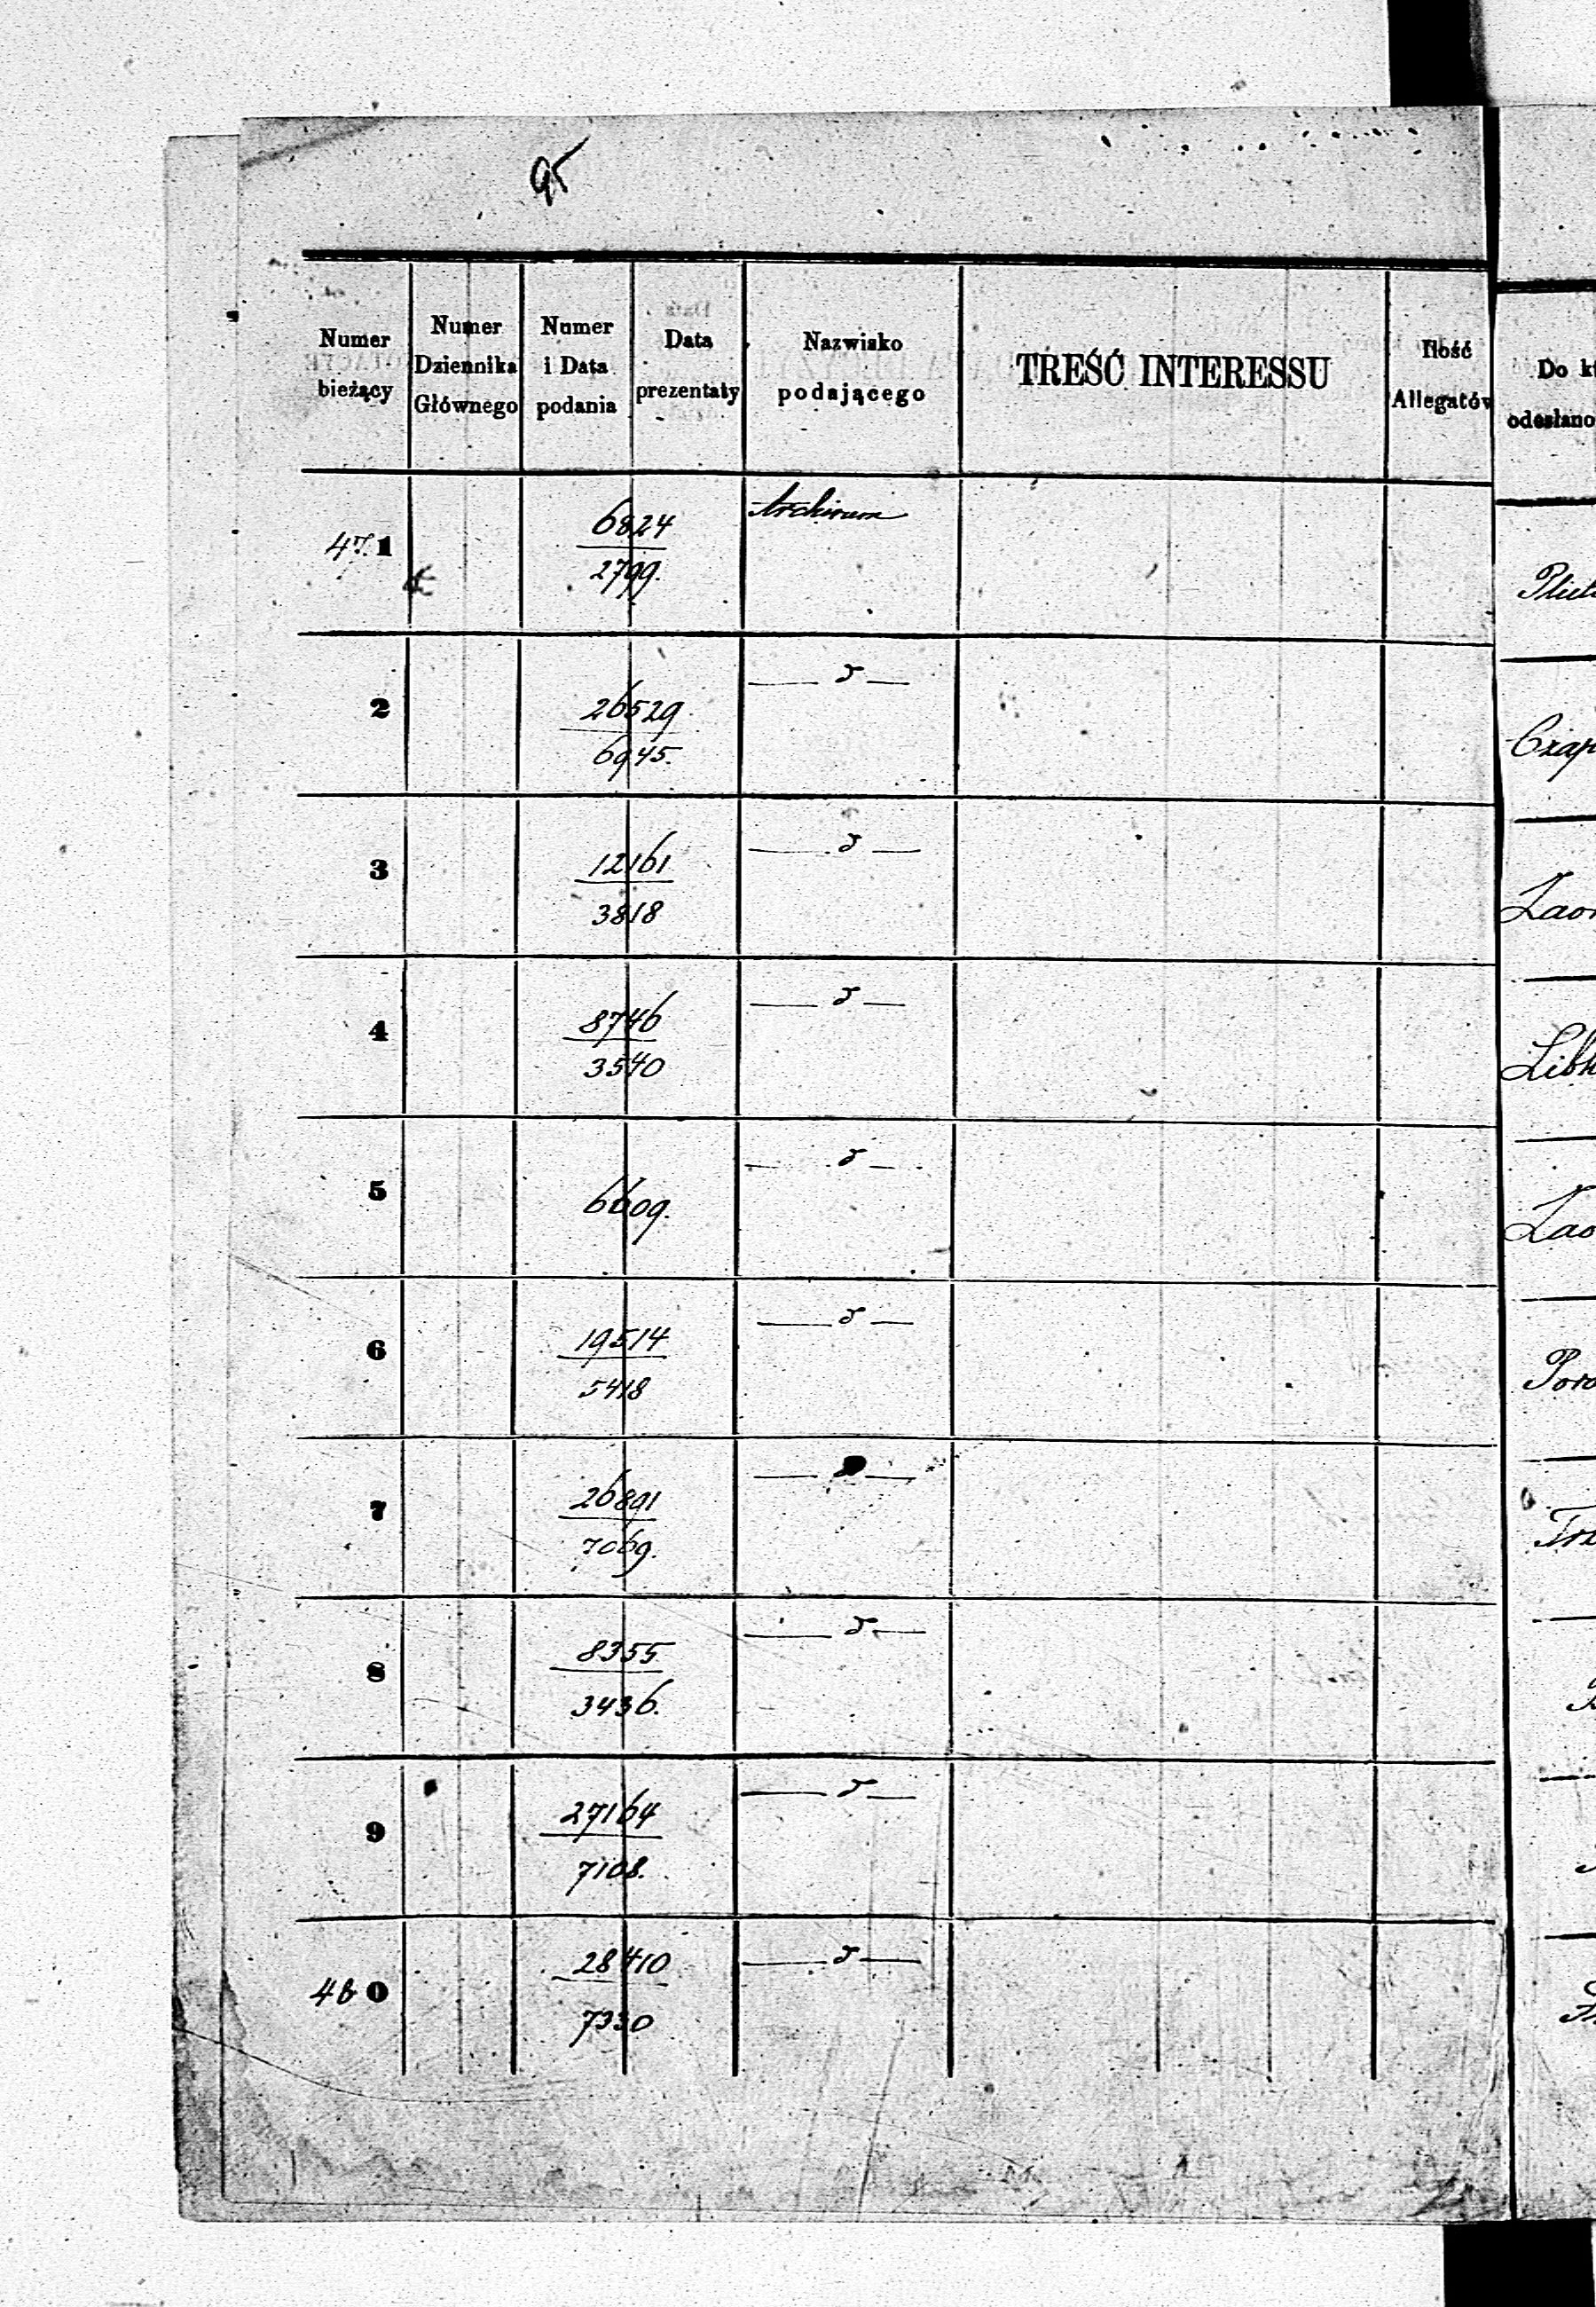 95
Numer bieżący
Numer Dziennika Głównego
Numer i Data podania
Data prezentaty
Nazwisko podającego
TREŚĆ INTERESSU
Ilość Allegatów
Do k
odesłano
47.1 6824 Archiwum
2799.
2 26529 — d —
6945.
Czap
3 12161 — d —
3818
4 8746 — d —
3540
5 6609. — d —
6 19514 — d —
5418
7 26891 — d —
7069.
8 8355 — d —
3436.
9 27164 — d —
7108.
0 28410 — d —
7330